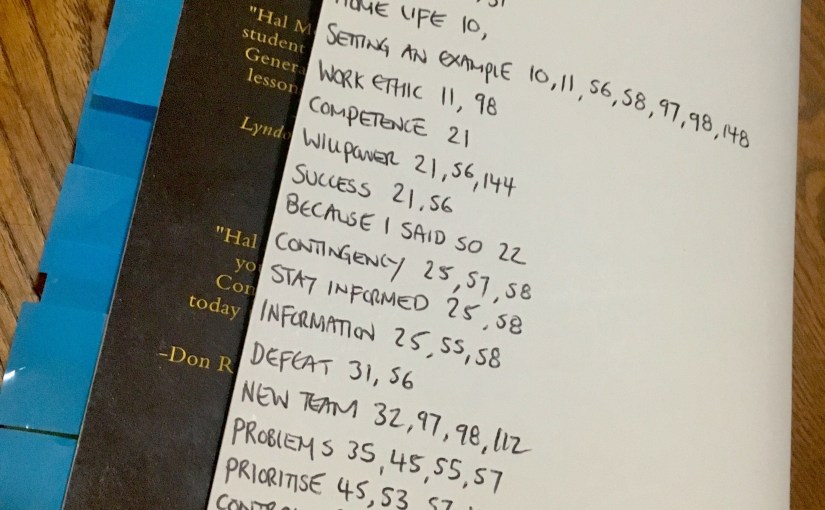 "Hal M
student
Gener
lesson
Lynd
"Hal
yo
Con
today
–Don R
HOME LIFE 10,
SETTING AN EXAMPLE 10,11,56,58,97,98,148
WORK ETHIC 11, 98
COMPETENCE 21
WILLPOWER 21,56,144
SUCCESS 21,56
BECAUSE I SAID SO 22
CONTINGENCY 25,57,58
STAY INFORMED 25,58
INFORMATION 25,55,58
DEFEAT 31,56
NEW TEAM 32,97,98,112
PROBLEMS 35,45,55,57
PRIORITISE 45,53,57